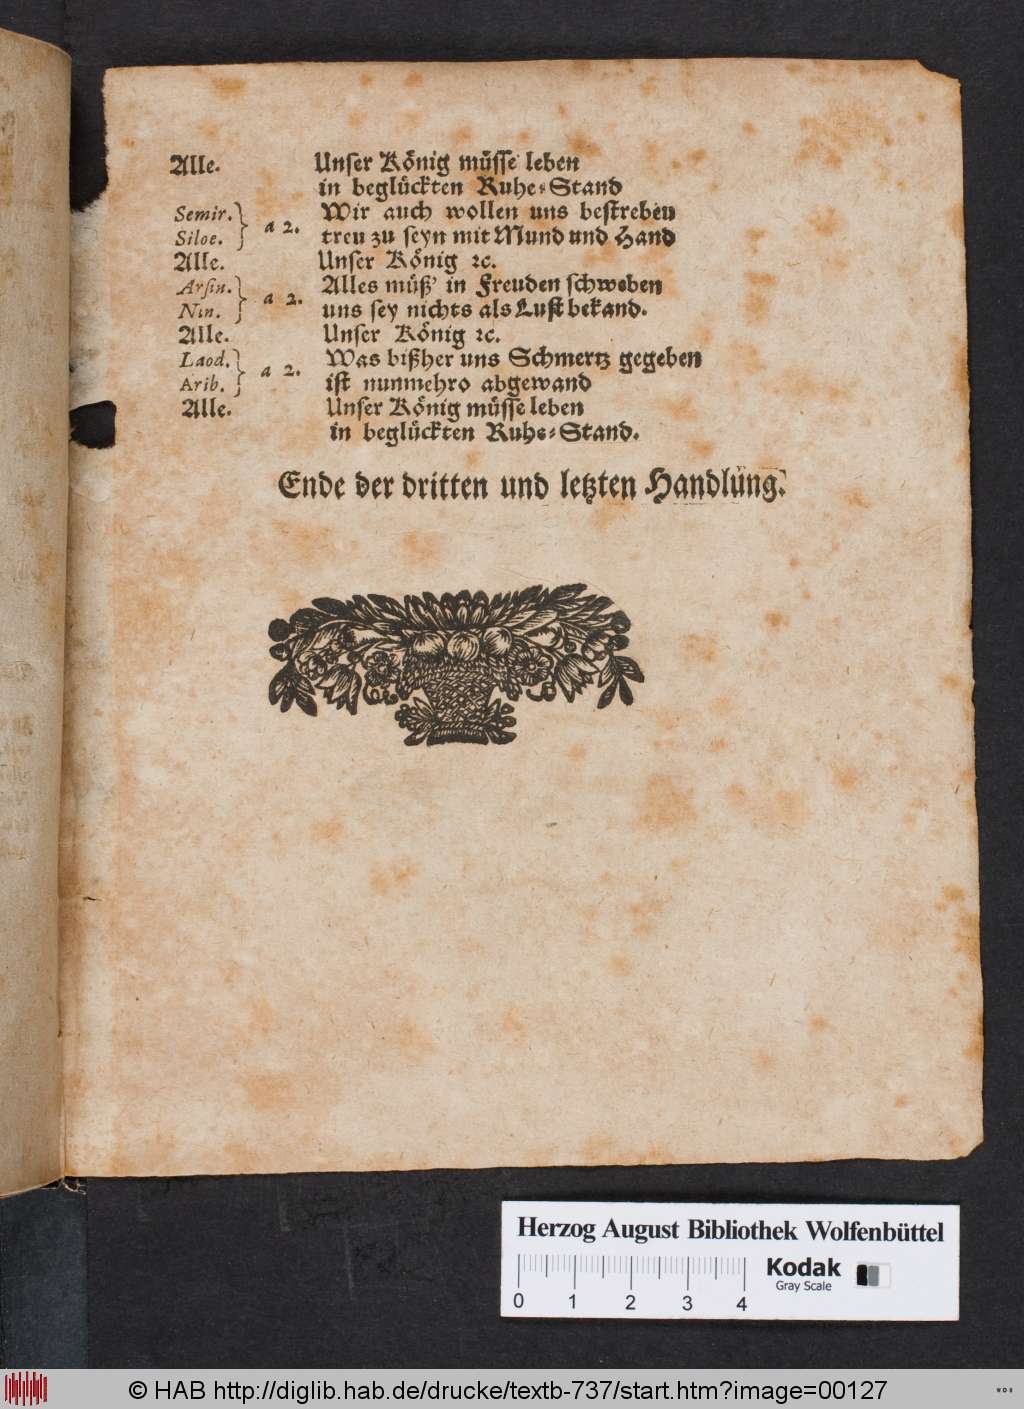 Alle. Unser König müsse leben
in beglückten Ruhe-Stand
Semir. } a 2. Wir auch wollen uns bestreben
Siloe. } treu zu seyn mit Mund und Hand
Alle. Unser König ꝛc.
Arsin. } a 2. Alles müß' in Freuden schweben
Nin. } uns sey nichts als Lust bekand.
Alle. Unser König ꝛc.
Laod. } a 2. Was bißher uns Schmertz gegeben
Arib. } ist nunmehro abgewand
Alle. Unser König müsse leben
in beglückten Ruhe-Stand.
Ende der dritten und letzten Handlüng.
Herzog August Bibliothek Wolfenbüttel
0 1 2 3 4
Kodak
Gray Scale
© HAB http://diglib.hab.de/drucke/textb-737/start.htm?image=00127